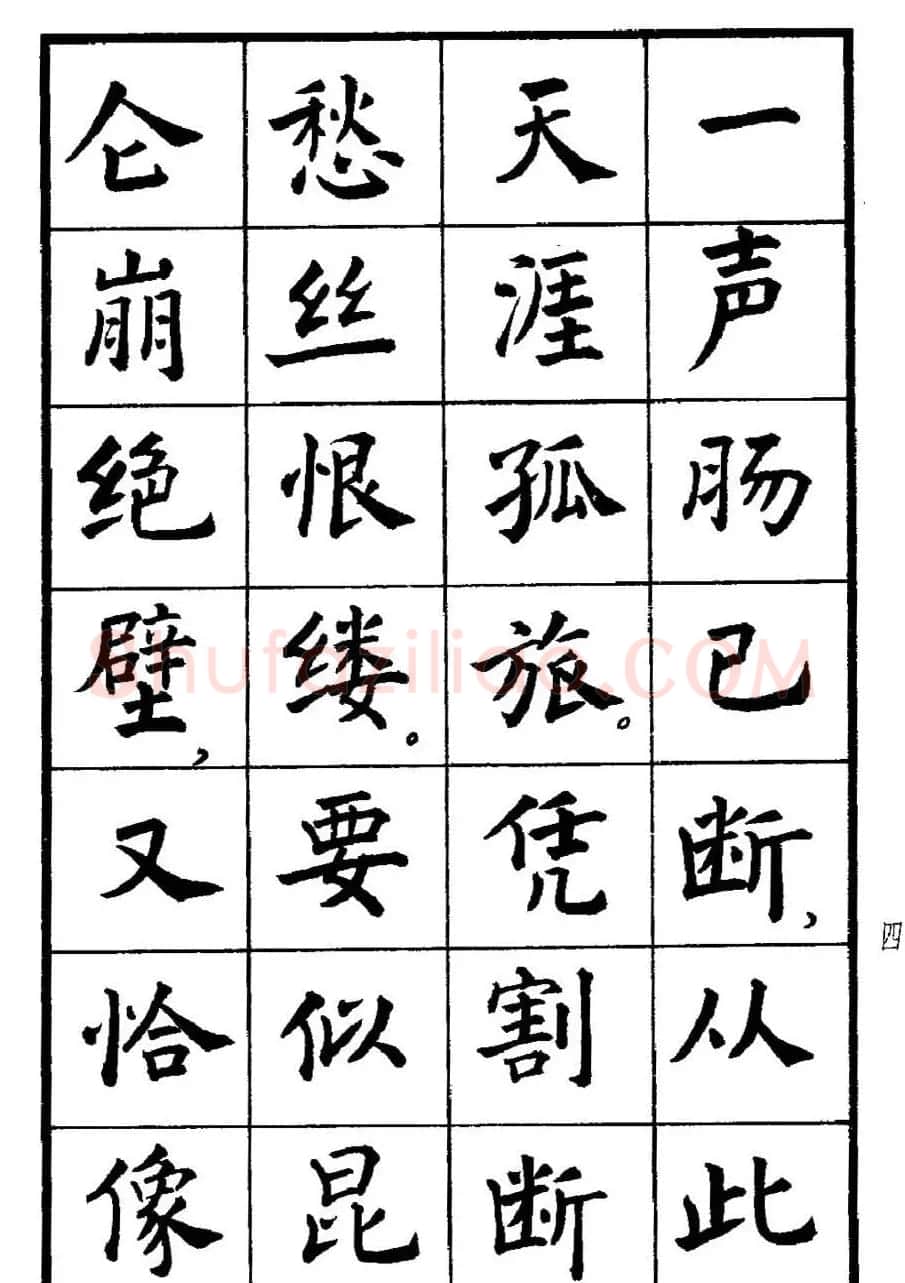 一声肠已断，从此
天涯孤旅。凭割断
愁丝恨缕。要似昆
仑崩绝壁，又恰像
四
Shufaziliao.COM